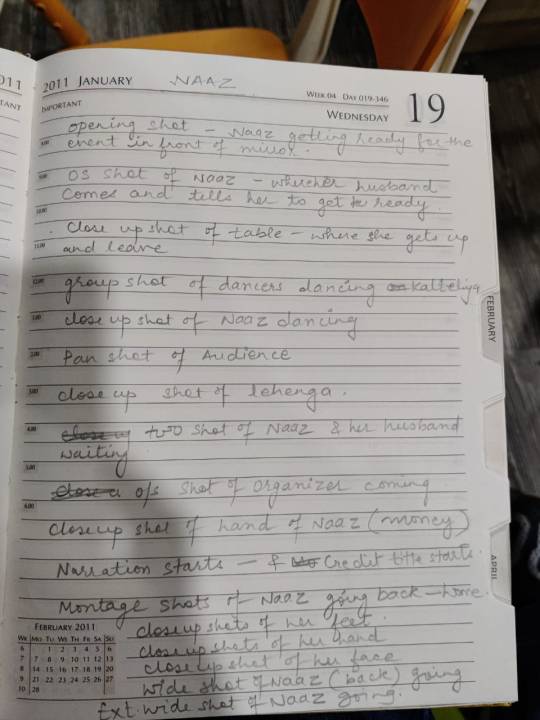 011
TANT
2011 JANUARY
NAAZ
WEEK 04 DAY 019-346
IMPORTANT
WEDNESDAY 19
opening shot - Naaz getting ready for the
8.00 event in front of mirror.
9.00 OS shot of Naaz - wherher husband
comes and tells her to get ready.
10.00
. Close up shot of table - where she gets up
11.00 and leave
12.00 group shot of dancers dancing on kalbeliya
1.00 close up shot of Naaz dancing
2.00 Pan shot of Audience
3.00 close up shot of lehenga.
4.00 close up two shot of Naaz & her husband
waiting
5.00
close u o/s shot of organizer coming
6.00
Closeup shot of hand of Naaz (money)
Narration starts - & Credit title starts.
Montage shots of Naaz going back - home
closeup shots of her feet
closeup shots of her hand
close up shot of her face
wide shot of Naaz (back) going
Ext. wide shot of Naaz going.
FEBRUARY 2011
WK MO TU WE TH FR SA SU
6 1 2 3 4 5 6
7 7 8 9 10 11 12 13
8 14 15 16 17 18 19 20
9 21 22 23 24 25 26 27
10 28
FEBRUARY
APRIL